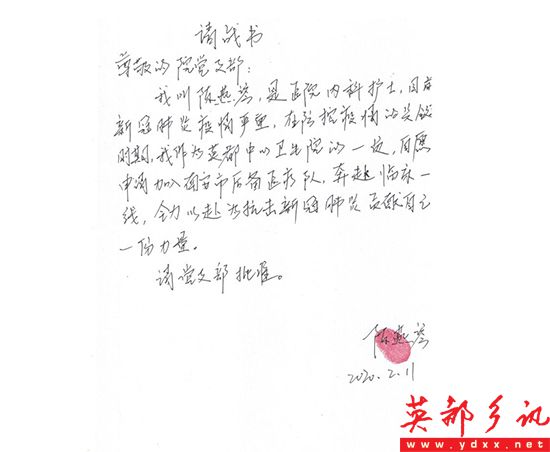 请战书
尊敬的院党支部：
我叫陈燕蓉，是医院内科护士，目前
新冠肺炎疫情严重，在防控疫情的关键
时期，我作为英都中心卫生院的一员，自愿
申请加入南安市后备医疗队，奔赴临床一
线，全力以赴为抗击新冠肺炎贡献自己
一份力量。
请党支部批准。
陈燕蓉
2020.2.11
英都乡讯
www.ydxx.net